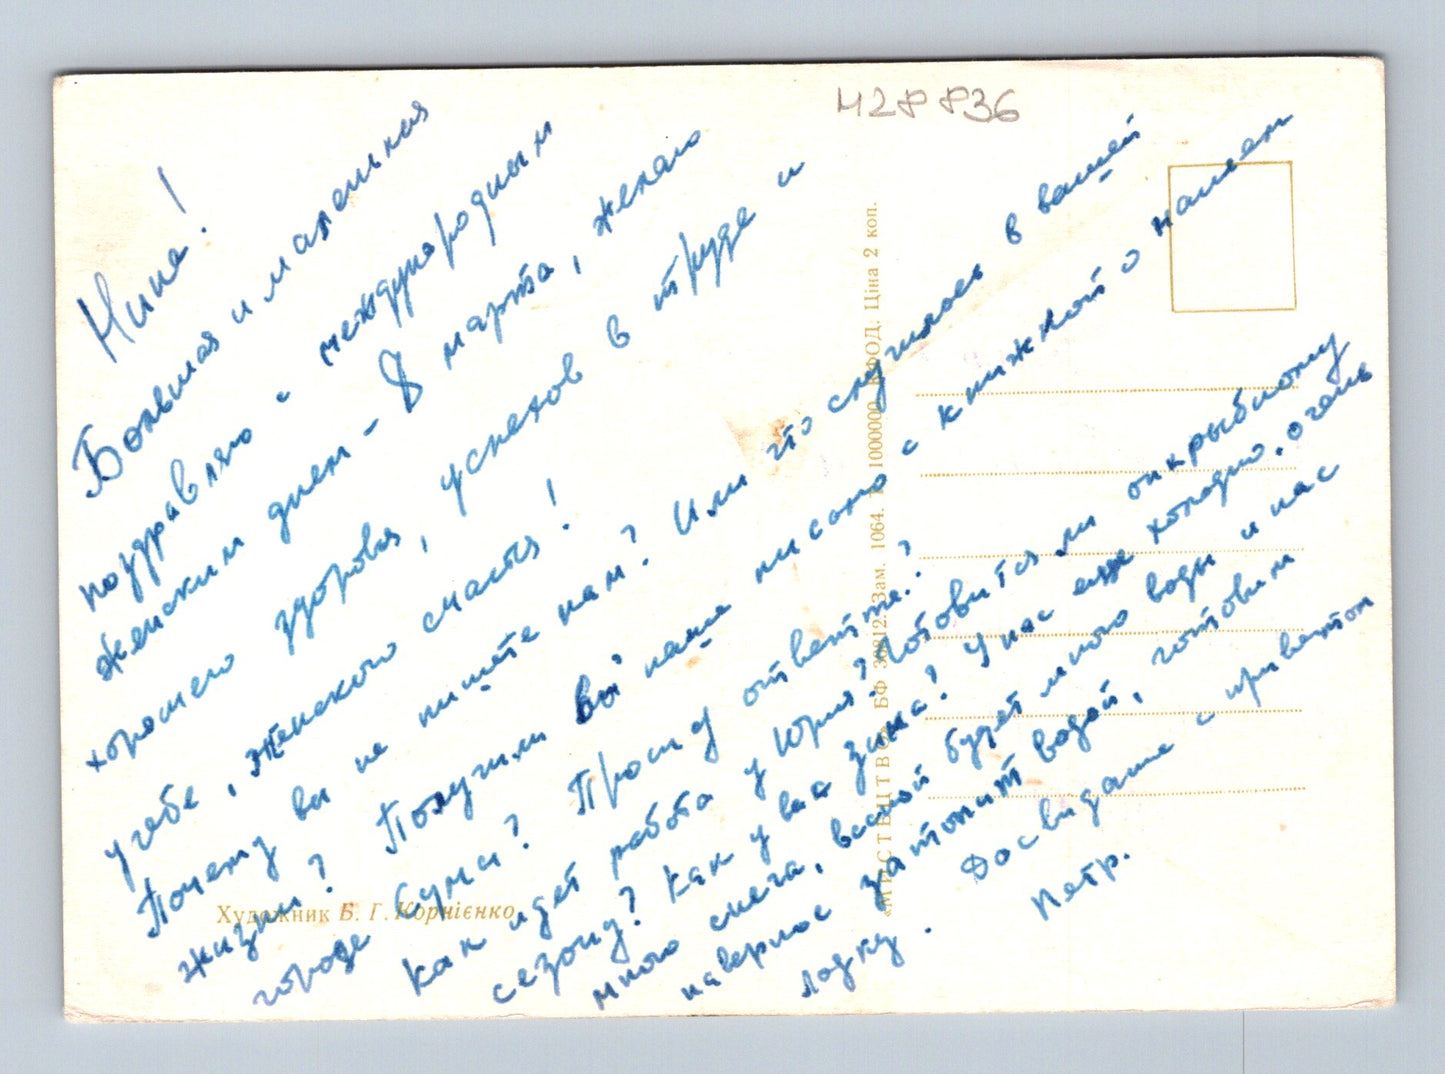 Н28836
Нина!
Большая и маленькая
поздравляю с международным
женским днем - 8 марта, желаю
хорошего здоровья, успехов в труде и
учебе, женского счастья!
Почему вы не пишете нам? Или что случилось в вашей
жизни? Получили вы наше письмо с книжкой о нашем
городе Прошу ответьте?
Как идет работа у Юрия? Готовится ли открытому
сезону? Как у вас зима? У нас еще холодно. очень
много снега, весной будет много воды и нас
наверное затопит водой, готовим
лодку. Досвидание с приветом
Петр.
Художник Б. Г. Корнієнко
«МИСТЕЦТВО». БФ Зам. 1064. 1000000. Ціна 2 коп.